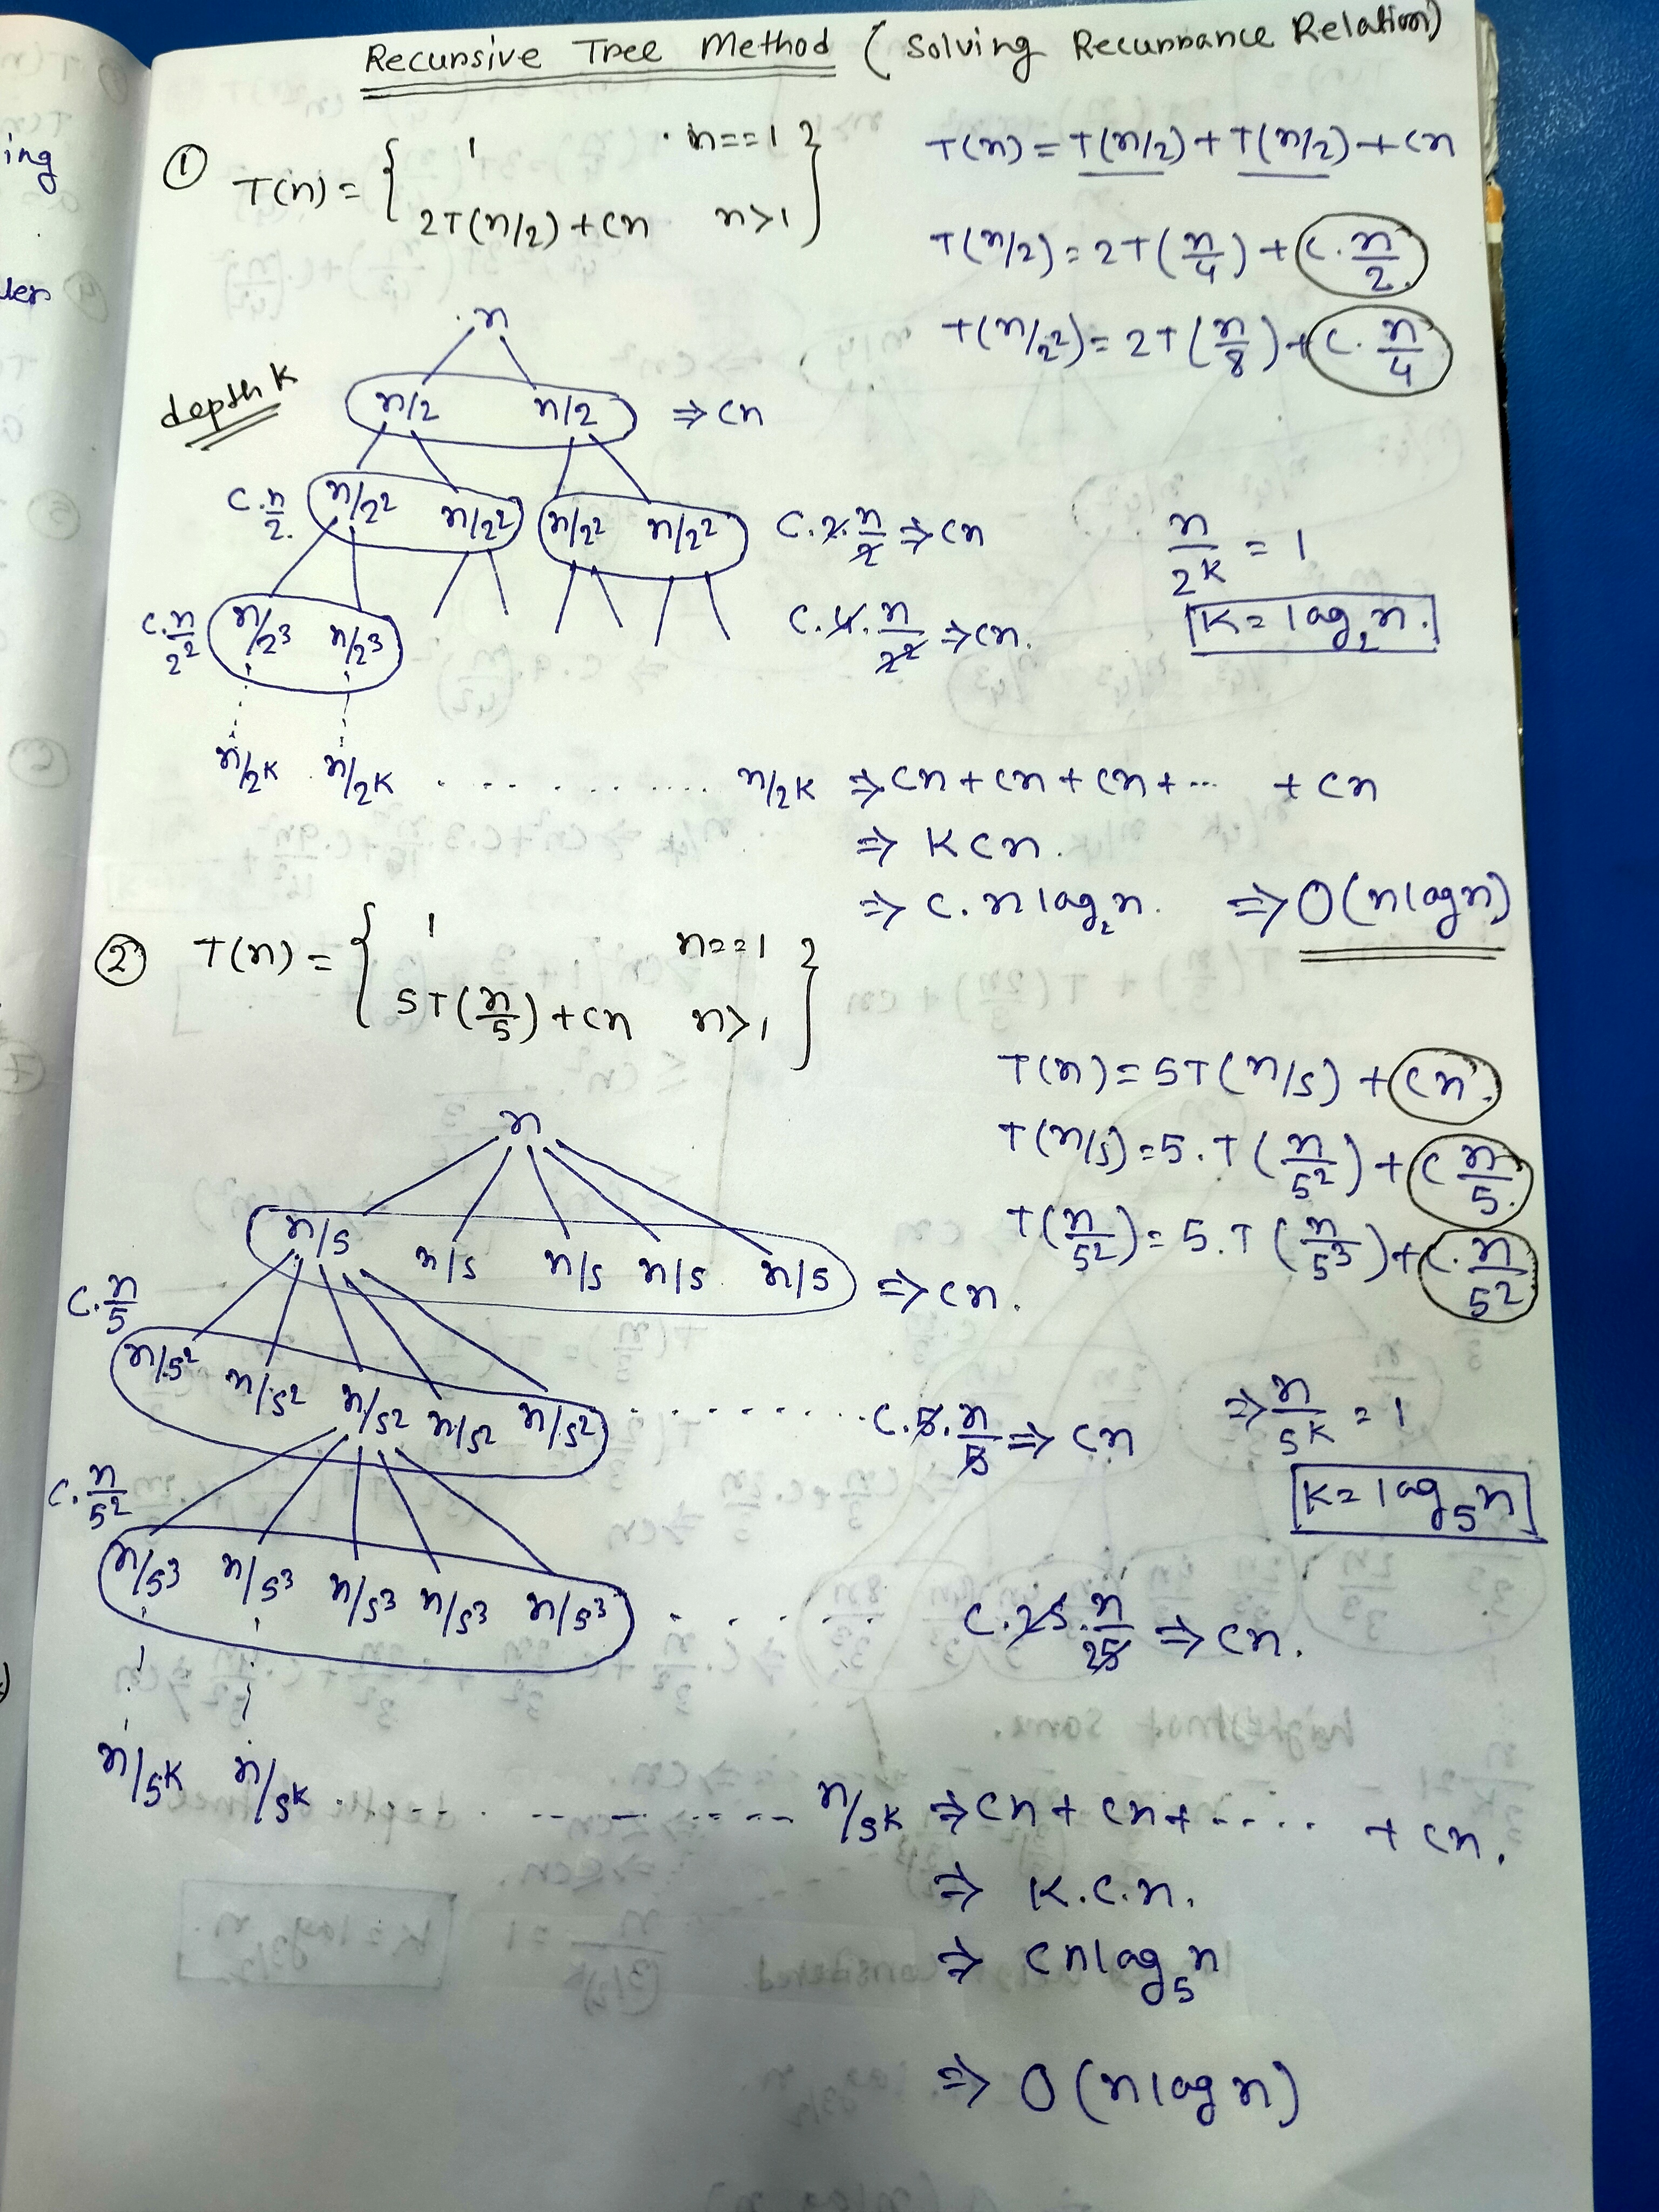 Recursive Tree Method ( Solving Recurrance Relation)
ing
ler
① T(n) = { 1 n==1
2T(n/2) + cn n>1 }
T(n) = T(n/2) + T(n/2) + cn
T(n/2) = 2T(n/4) + c.n/2
T(n/2²) = 2T(n/8) + c.n/4
depth K
n
n/2 n/2 ⇒ cn
c.n/2 n/2² n/2² n/2² n/2² c.2.n/2 ⇒ cn
n/2^K = 1
K = log₂n.
c.n/2² n/2³ n/2³ c.4.n/2² ⇒ cn.
n/2^K n/2^K . . . . . . . . . n/2^K ⇒ cn + cn + cn + ... + cn
⇒ Kcn.
⇒ c.nlog₂n. ⇒ O(nlogn)
② T(n) = { 1 n==1
5T(n/5) + cn n>1 }
T(n) = 5T(n/5) + cn.
T(n/5) = 5.T(n/5²) + c n/5.
T(n/5²) = 5.T(n/5³) + c.n/5²
n
n/5 n/5 n/5 n/5 n/5 ⇒ cn.
c.n/5 n/5² n/5² n/5² n/5² n/5² . . . . . . . . . c.5.n/5 ⇒ cn
⇒ n/5^K = 1
K = log₅n
c.n/5² n/5³ n/5³ n/5³ n/5³ n/5³ . . . . . c.25.n/25 ⇒ cn.
n/5^K n/5^K . . . . . . . . . n/5^K ⇒ cn + cn + ..... + cn.
⇒ K.c.n.
⇒ cnlog₅n
⇒ O(nlogn)